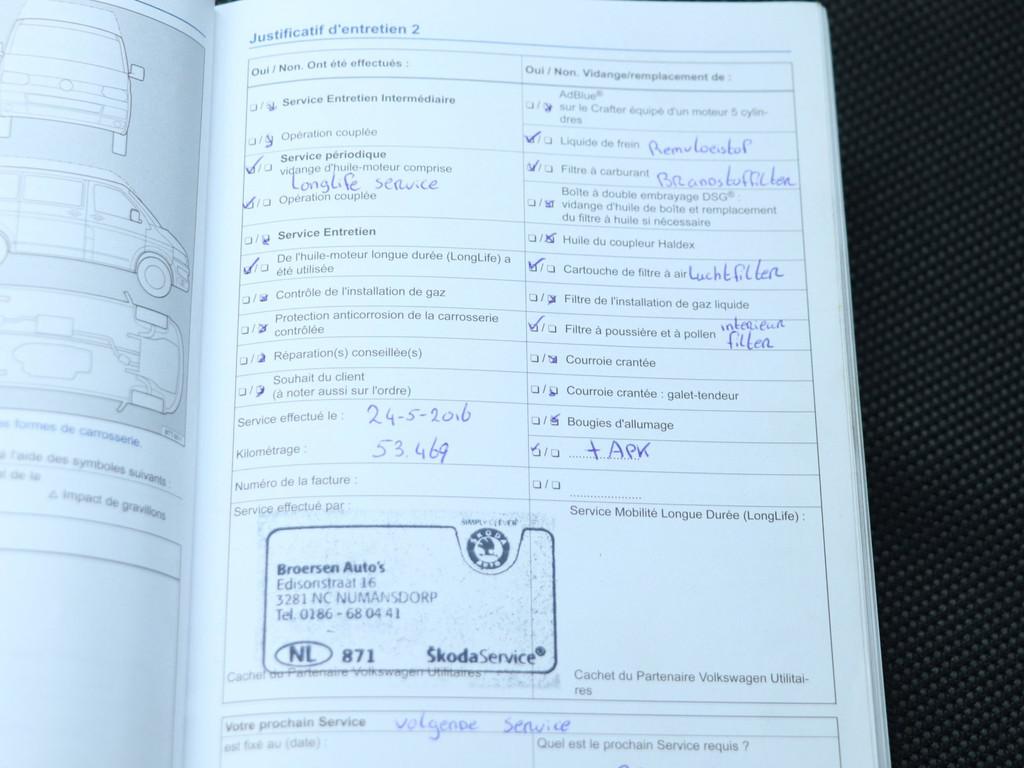 es formes de carrosserie.
à l'aide des symboles suivants :
at de le
⚠ Impact de gravillons
Justificatif d'entretien 2
Oui / Non. Ont été effectués :
Service Entretien Intermédiaire
Opération couplée
Service périodique
vidange d'huile-moteur comprise
Longlife service
Opération couplée
Service Entretien
De l'huile-moteur longue durée (LongLife) a
été utilisée
Contrôle de l'installation de gaz
Protection anticorrosion de la carrosserie
contrôlée
Réparation(s) conseillée(s)
Souhait du client
(à noter aussi sur l'ordre)
Service effectué le : 24-5-2016
Kilométrage : 53.469
Numéro de la facture :
Service effectué par :
Oui / Non. Vidange/remplacement de :
AdBlue®
sur le Crafter équipé d'un moteur 5 cylin-
dres
Liquide de frein Remvloeistof
Filtre à carburant Brandstoffilter
Boîte à double embrayage DSG® :
vidange d'huile de boîte et remplacement
du filtre à huile si nécessaire
Huile du coupleur Haldex
Cartouche de filtre à air Luchtfilter
Filtre de l'installation de gaz liquide
Filtre à poussière et à pollen interieur
filter
Courroie crantée
Courroie crantée : galet-tendeur
Bougies d'allumage
+ APK
Service Mobilité Longue Durée (LongLife) :
SIMPLY CLEVER
SKODA
AUTO
Broersen Auto's
Edisonstraat 16
3281 NC NUMANSDORP
Tel. 0186 - 68 04 41
NL 871 ŠkodaService®
Cachet du Partenaire Volkswagen Utilitaires
Cachet du Partenaire Volkswagen Utilitai-
res
Votre prochain Service volgende service
est fixé au (date) :
Quel est le prochain Service requis ?